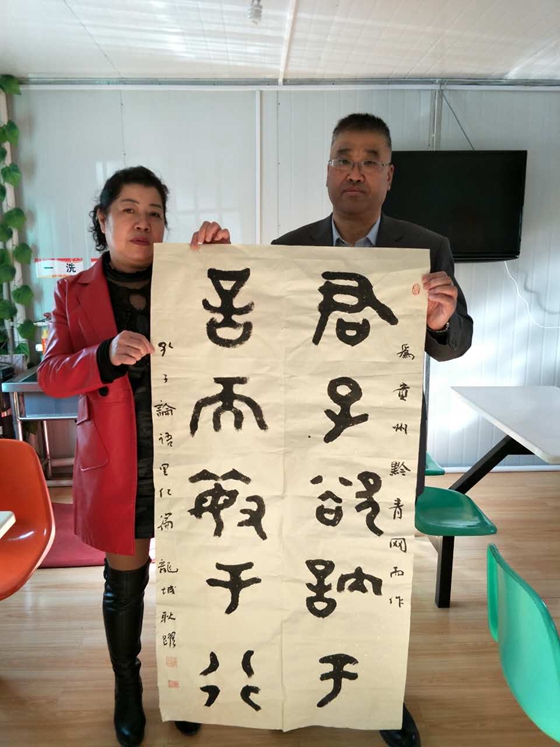 為貴州黔青网而作
君子欲訥于
言而敏于行
孔子論語里仁篇 龍城耿躍
一 洗